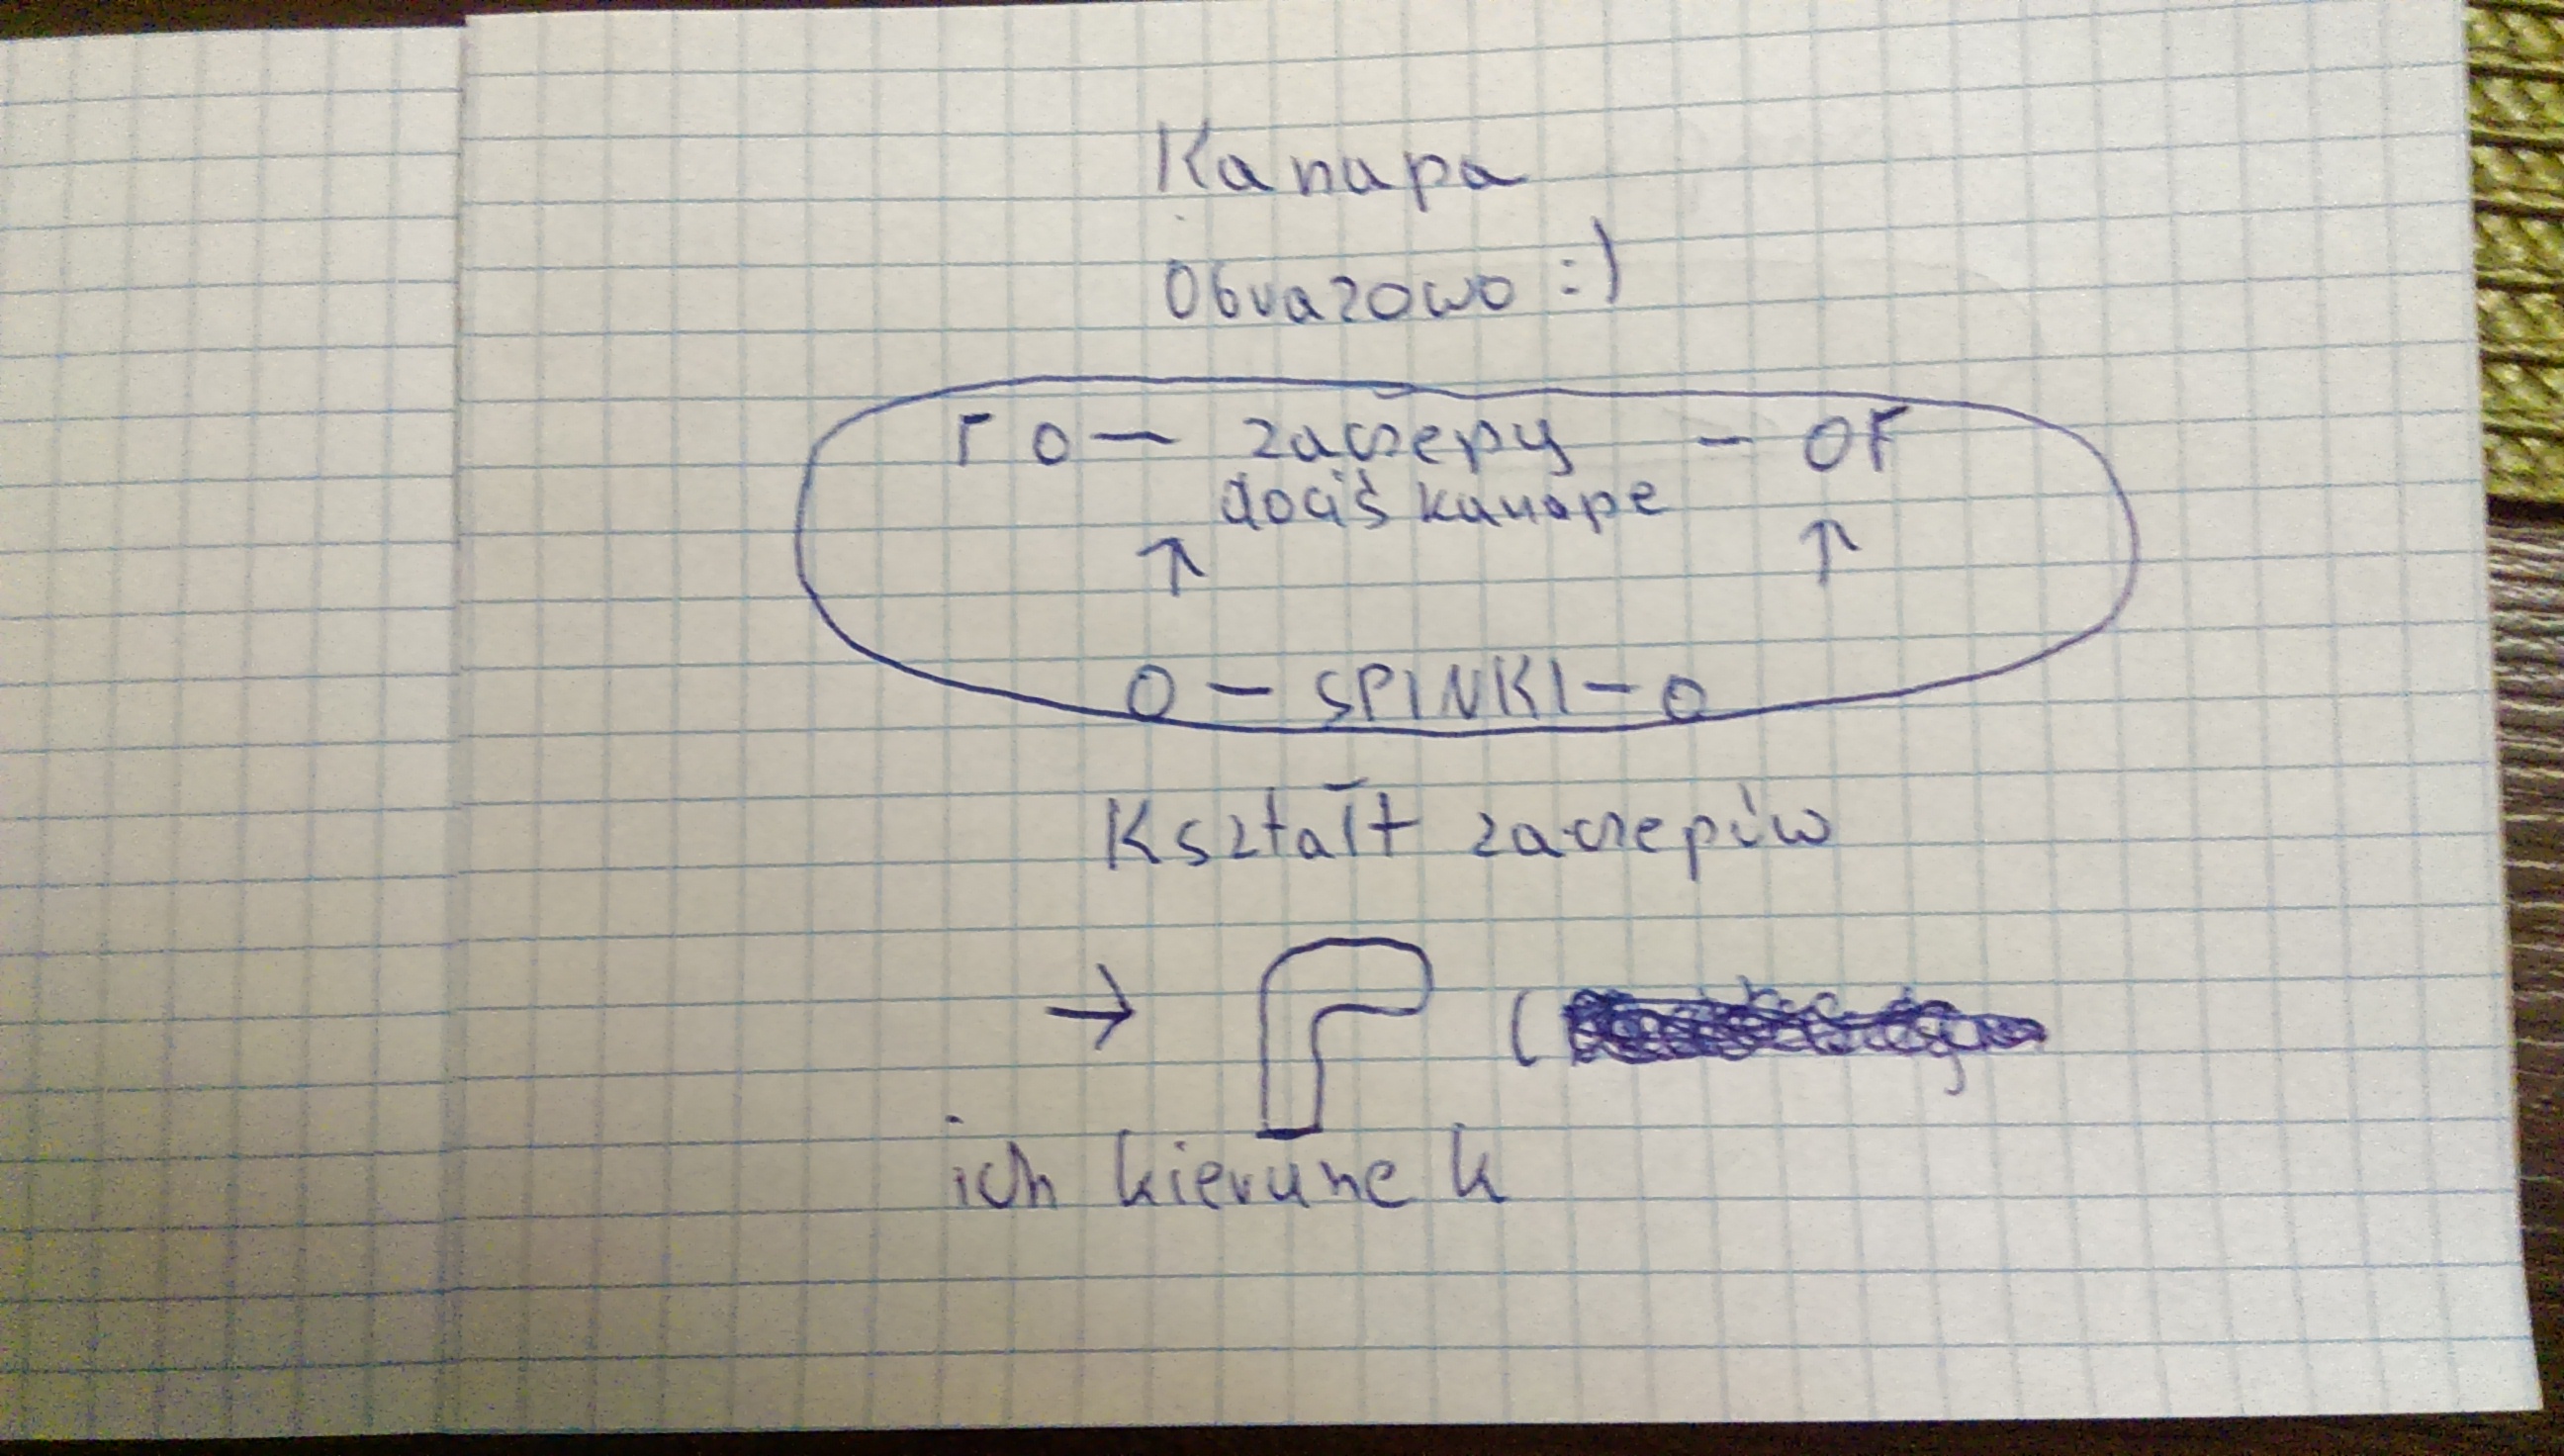 Kanapa
Obrazowo :)
Γ O — zaczepy — OΓ
dociś kanape
↑ ↑
O — SPINKI — O
Kształt zaczepów
→ (
ich kierunek